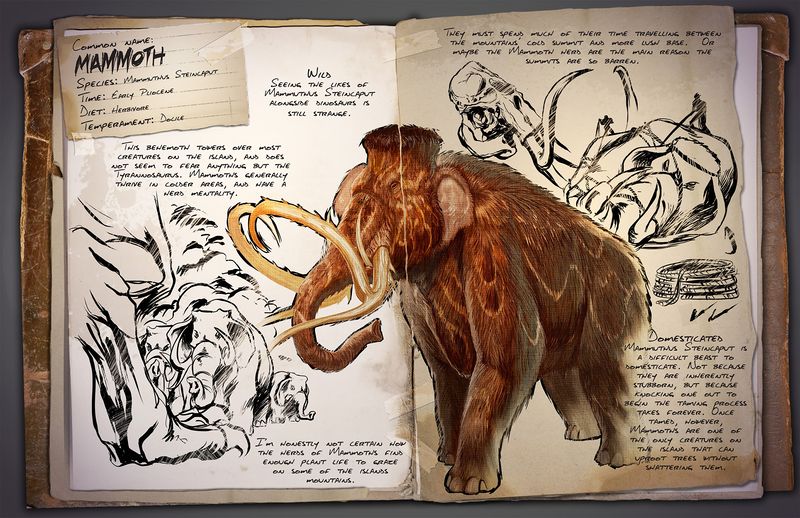 Common name:
MAMMOTH
Species: Mammuthus Steincaput
Time: Early Pliocene
Diet: Herbivore
Temperament: Docile
This behemoth towers over most
creatures on the island, and does
not seem to fear anything but the
Tyrannosaurus. Mammoths generally
thrive in colder areas, and have a
herd mentality.
Wild
Seeing the likes of
Mammuthus Steincaput
alongside dinosaurs is
still strange.
I'm honestly not certain how
the herds of Mammoths find
enough plant life to graze
on some of the islands
mountains.
They must spend much of their time travelling between
the mountains cold summit and more lush base. Or
maybe the Mammoth herd are the main reason the
summits are so barren.
Domesticated
Mammuthus Steincaput is
a difficult beast to
domesticate. Not because
they are inherently
stubborn, but because
knocking one out to
begin the taming process
takes forever. Once
tamed, however,
Mammoths are one of
the only creatures on
the island that can
uproot trees without
shattering them.